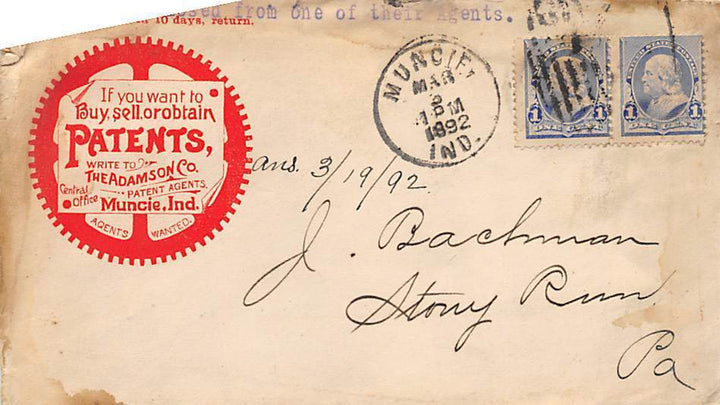 from one of their Agents.
in 10 days, return.
If you want to
Buy, sell, or obtain
PATENTS,
WRITE TO
THE ADAMSON CO.
PATENT AGENTS.
Central
Office
Muncie, Ind.
AGENTS WANTED.
MUNCIE,
MAR
5
1892
IND.
1 1
ONE CENT
1 1
ans. 3/19/92
J. Bachman
Stony Run
Pa